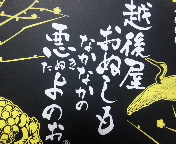 越後屋
おぬしも
なかなかの
悪たぬきよのお